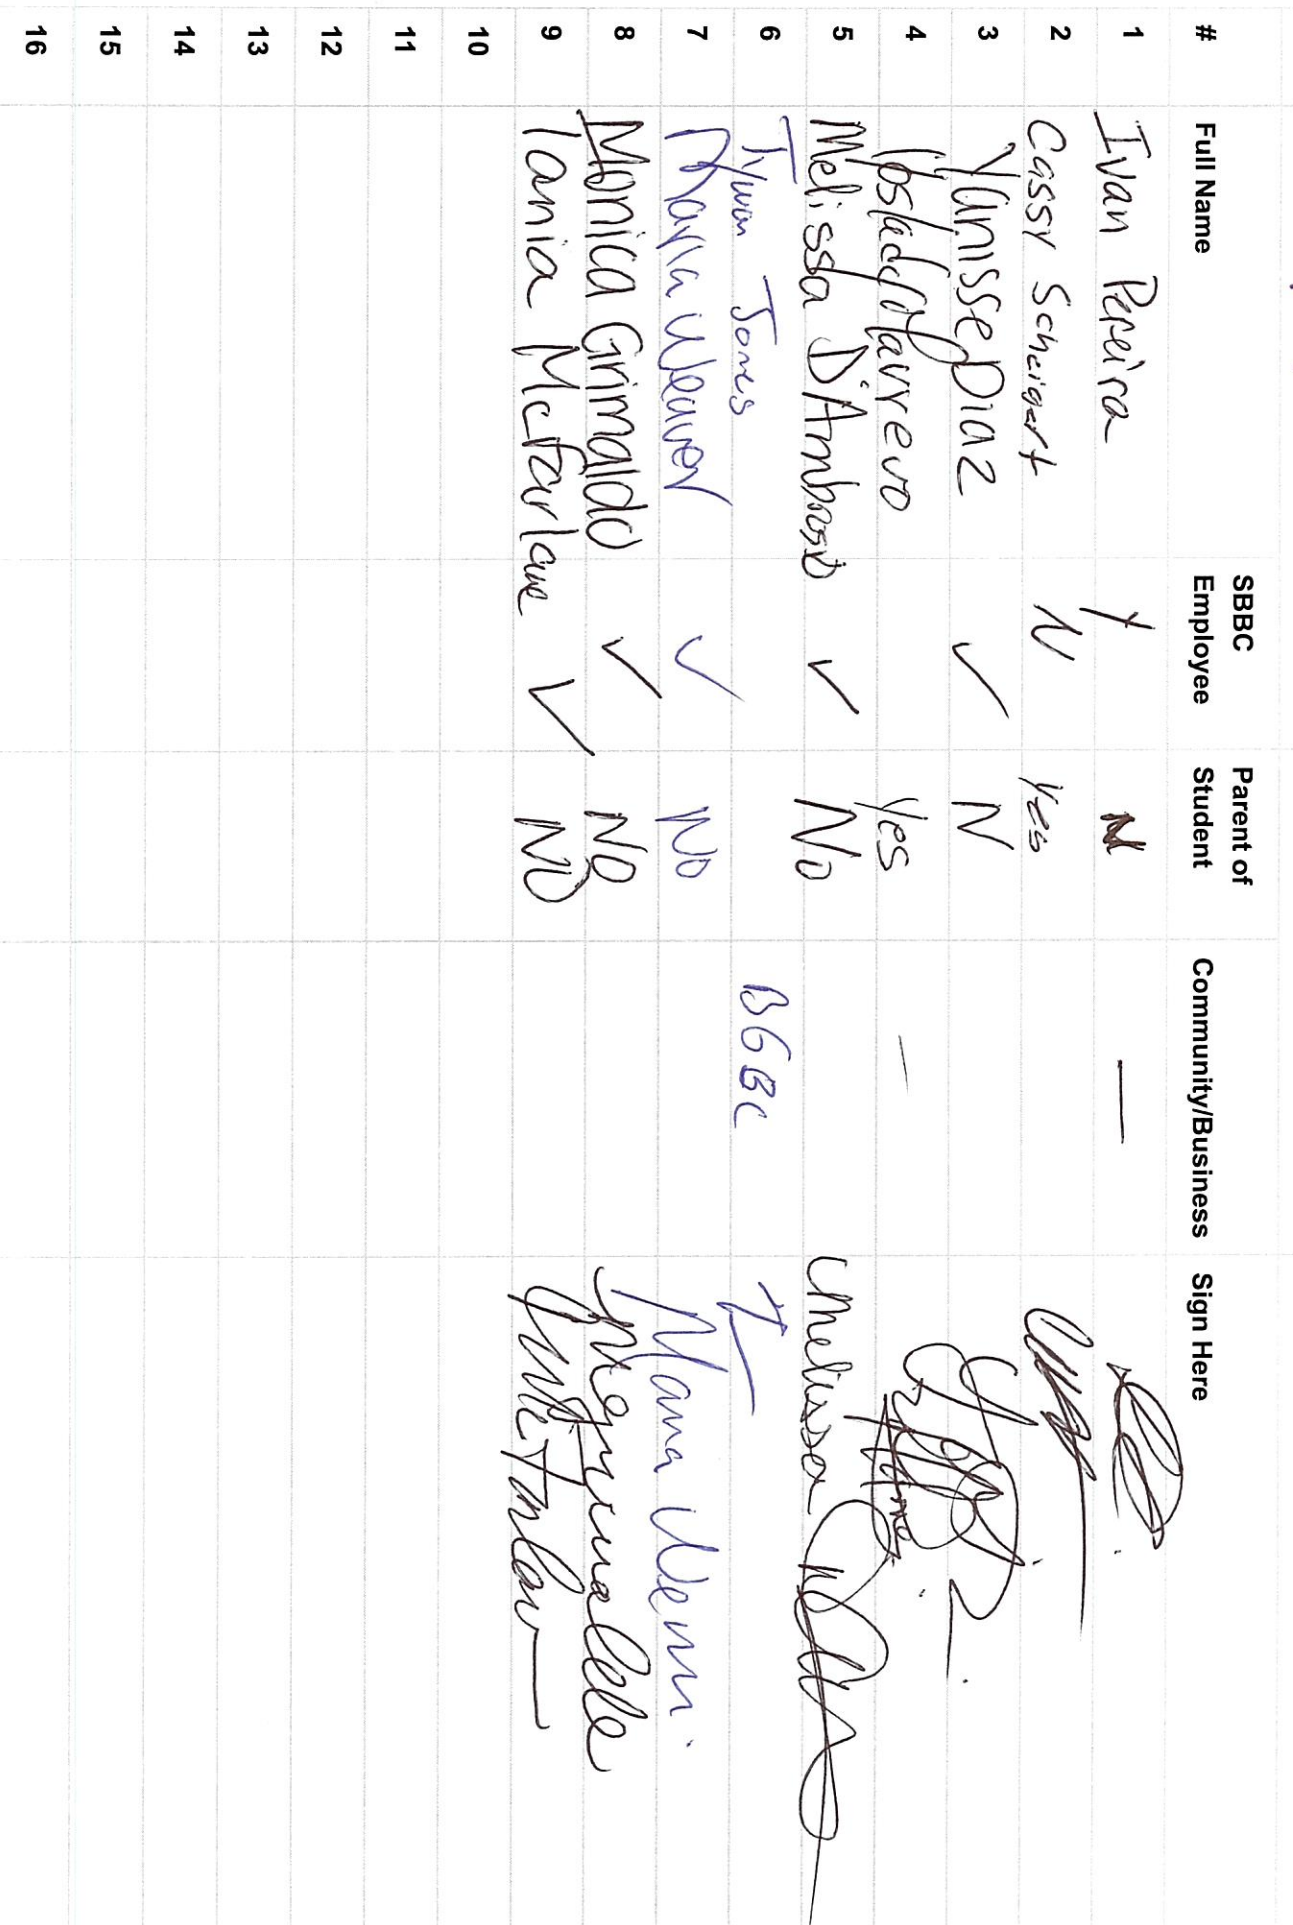 # Full Name SBBC Employee Parent of Student Community/Business Sign Here
1 Ivan Pereira Y N —
2 Cassy Scheigert N Yes
3 Yanisse Diaz ✓ N
4 Yes —
5 Melissa D'Ambrosio ✓ No Melissa
6 Jones BGBC
7 Weaver ✓ No
8 Monica Grimaldo ✓ No
9 Tania McFarlane ✓ NO
10
11
12
13
14
15
16